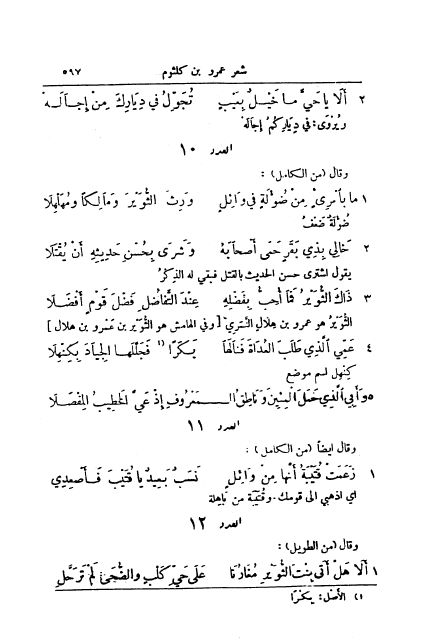 شعر عمرو بن كلثوم ٥٩٧
٢ ألا يا حيّ ما خيل تجول في ديارك من إجاله
ويروى: في دياركم إجاله
العدد ١٠
وقال (من الكامل) :
١ ما بامرئ من ضُولة في وائل ورث الثوير ومالكا ومهلهلا
ضُولة ضعف
٢ خالي بذي بقر حمى أصحابه وشرى بحسن حديثه أن يُقتلا
يقول اشترى حسن الحديث بالقتل فبقي له الذكر
٣ ذاك الثوير فما أحب بفضله عند التفاضل فضل قوم أفضلا
الثوير هو عمرو بن هلال النمري [وفي الهامش هو الثوير بن عمرو بن هلال]
٤ عمي الذي طلب العداة فنالها بكرا ١) فجللها الجياد بكنهلا
كنهل اسم موضع
٥ وأبي الذي حمل المئين وناطق المعروف إذ عيّ الخطيب المفصلا
العدد ١١
وقال ايضاً (من الكامل) :
١ زعمت قُتيبة أنها من وائل نسب بعيد يا قتيب فأصعدي
اي اذهبي الى قومك . وقتيبة من باهلة
العدد ١٢
وقال (من الطويل) :
١ ألا هل أتى بنت الثوير مغارنا على حيّ كلب والضحى لم ترحّل
١) الأصل: يكرا